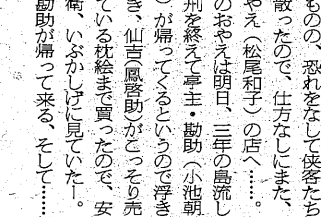 ものの、恐れをなして侠客たち
散ったので、仕方なしにまた、
やえ(松尾和子)の店へ……。
のおやえは明日、三年の島流し
刑を終えて亭主・勘助(小池朝
)が帰ってくるというので浮き
き、仙吉(鳳啓助)がこっそり売
ている枕絵まで買ったので、安
衛、いぶかしげに見ていた―。
勘助が帰って来る、そして……